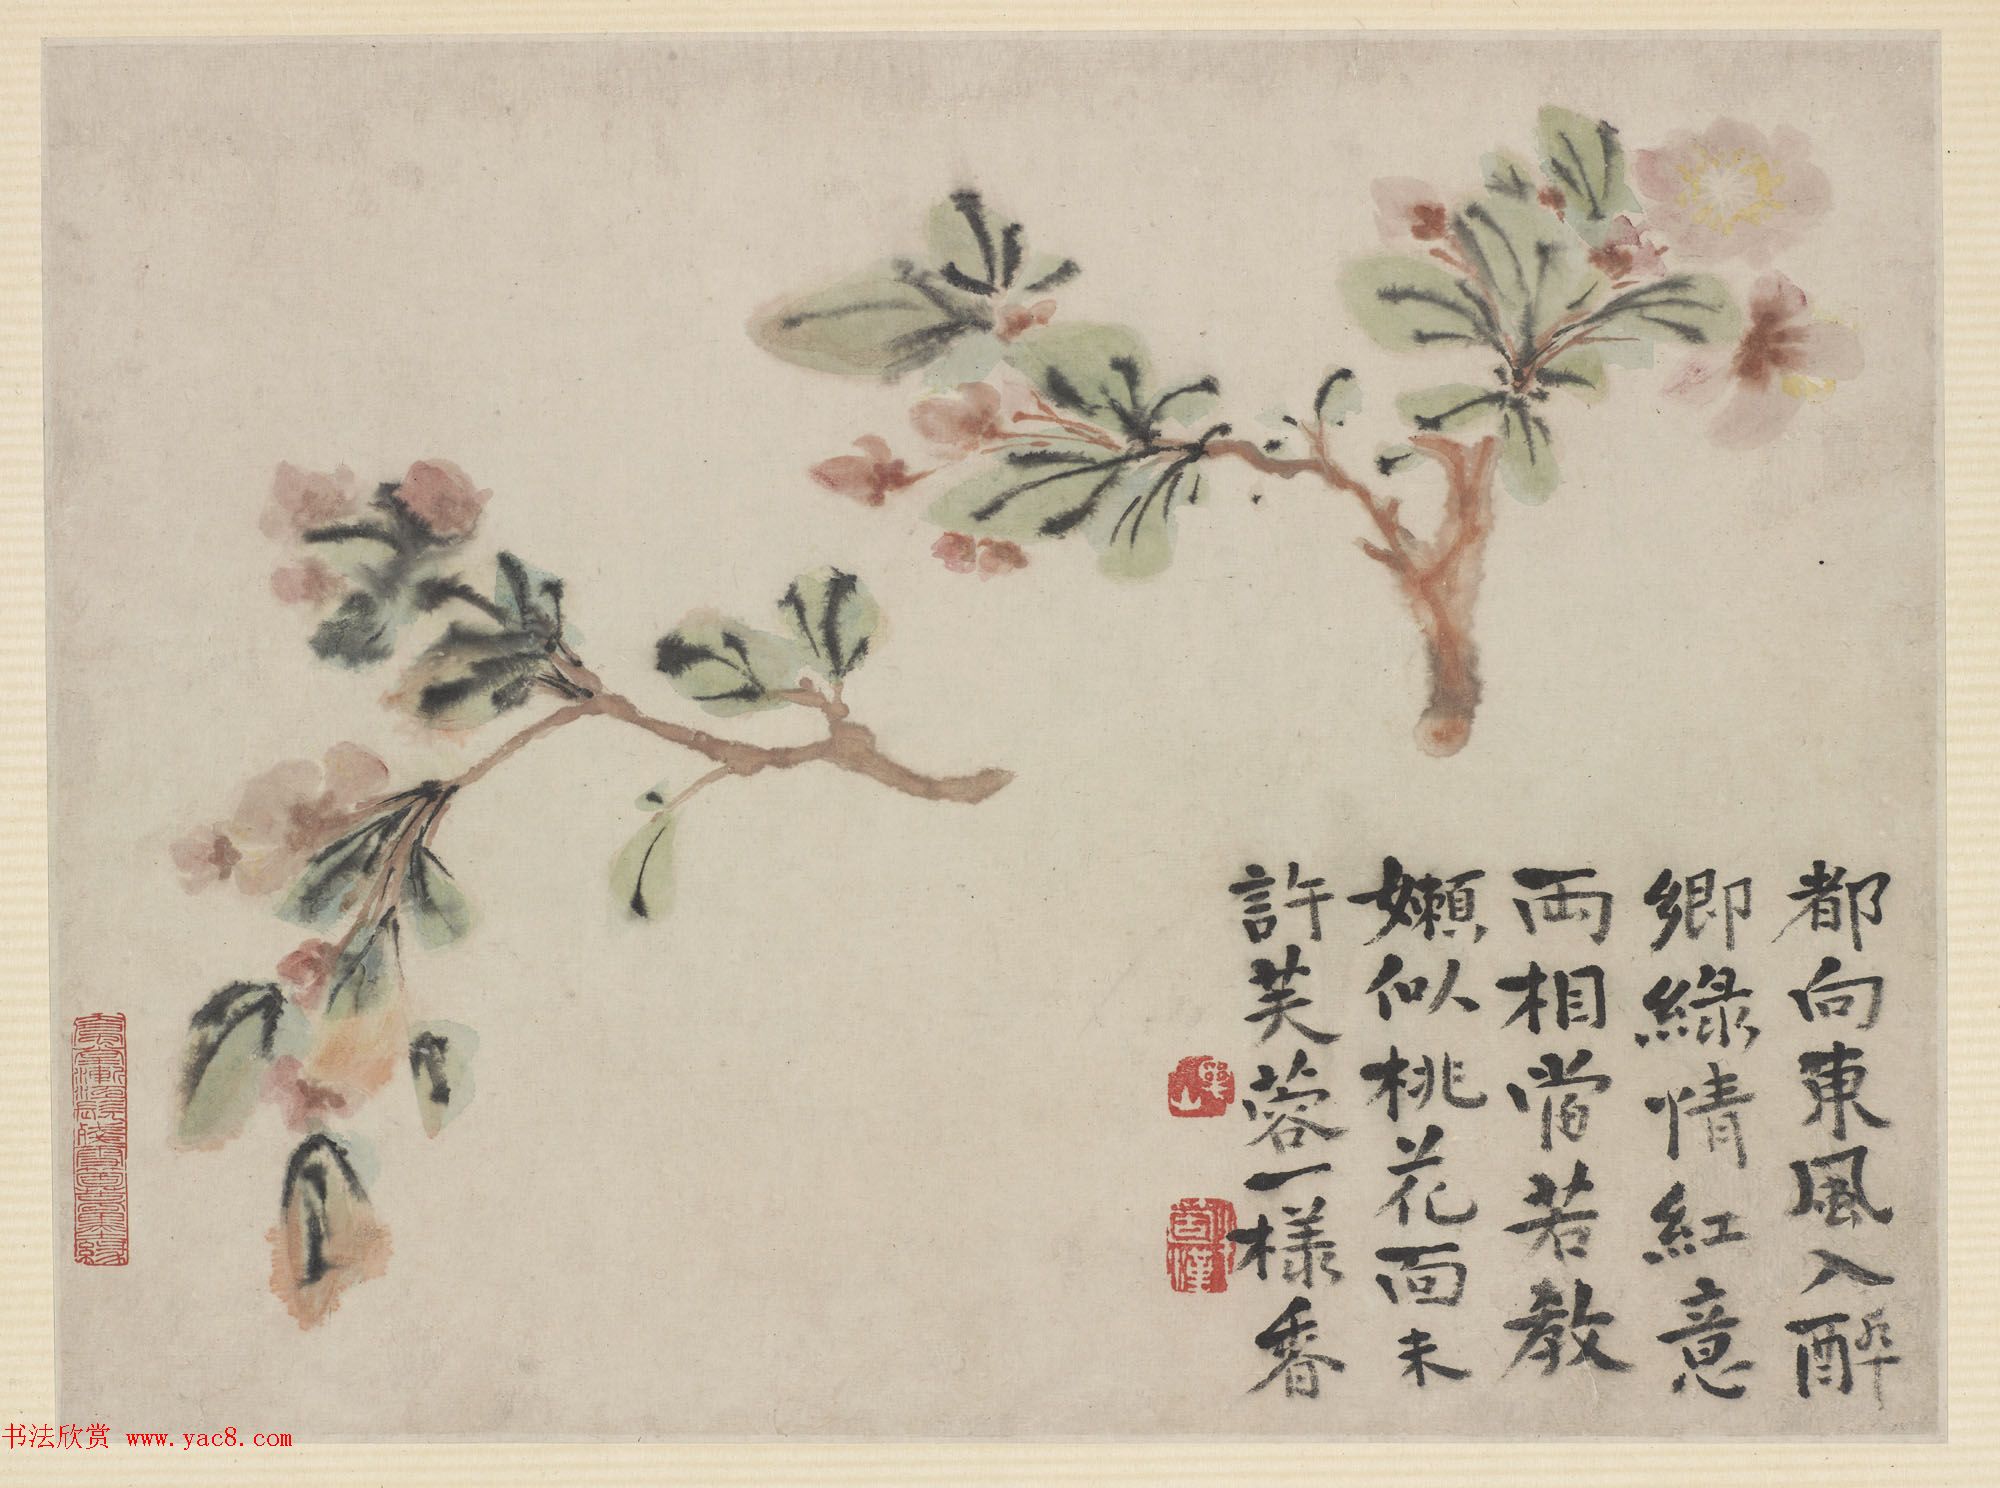 都向東風入醉
鄉綠情紅意
兩相當若教
嬾似桃花面未
許芙蓉一樣香
书法欣赏 www.yac8.com